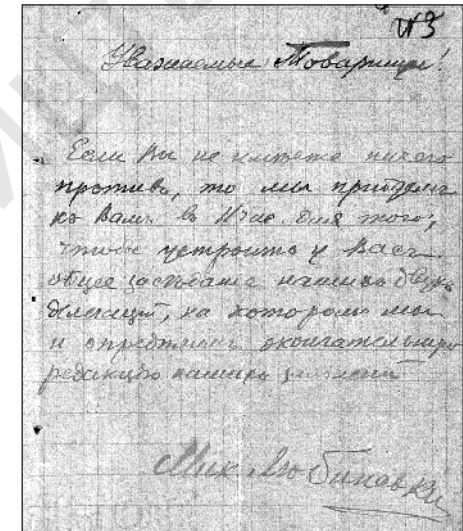 №3
Уважаемые Товарищи!
Если Вы не имѣете ничего
противъ, то мы прiѣдемъ
къ Вамъ въ 11 час. для того,
чтобы устроить у Васъ
общее засѣданiе нашихъ двухъ
делегацiй, на которомъ мы
и опредѣлимъ окончательную
редакцiю нашихъ
Мих. Любинскiй